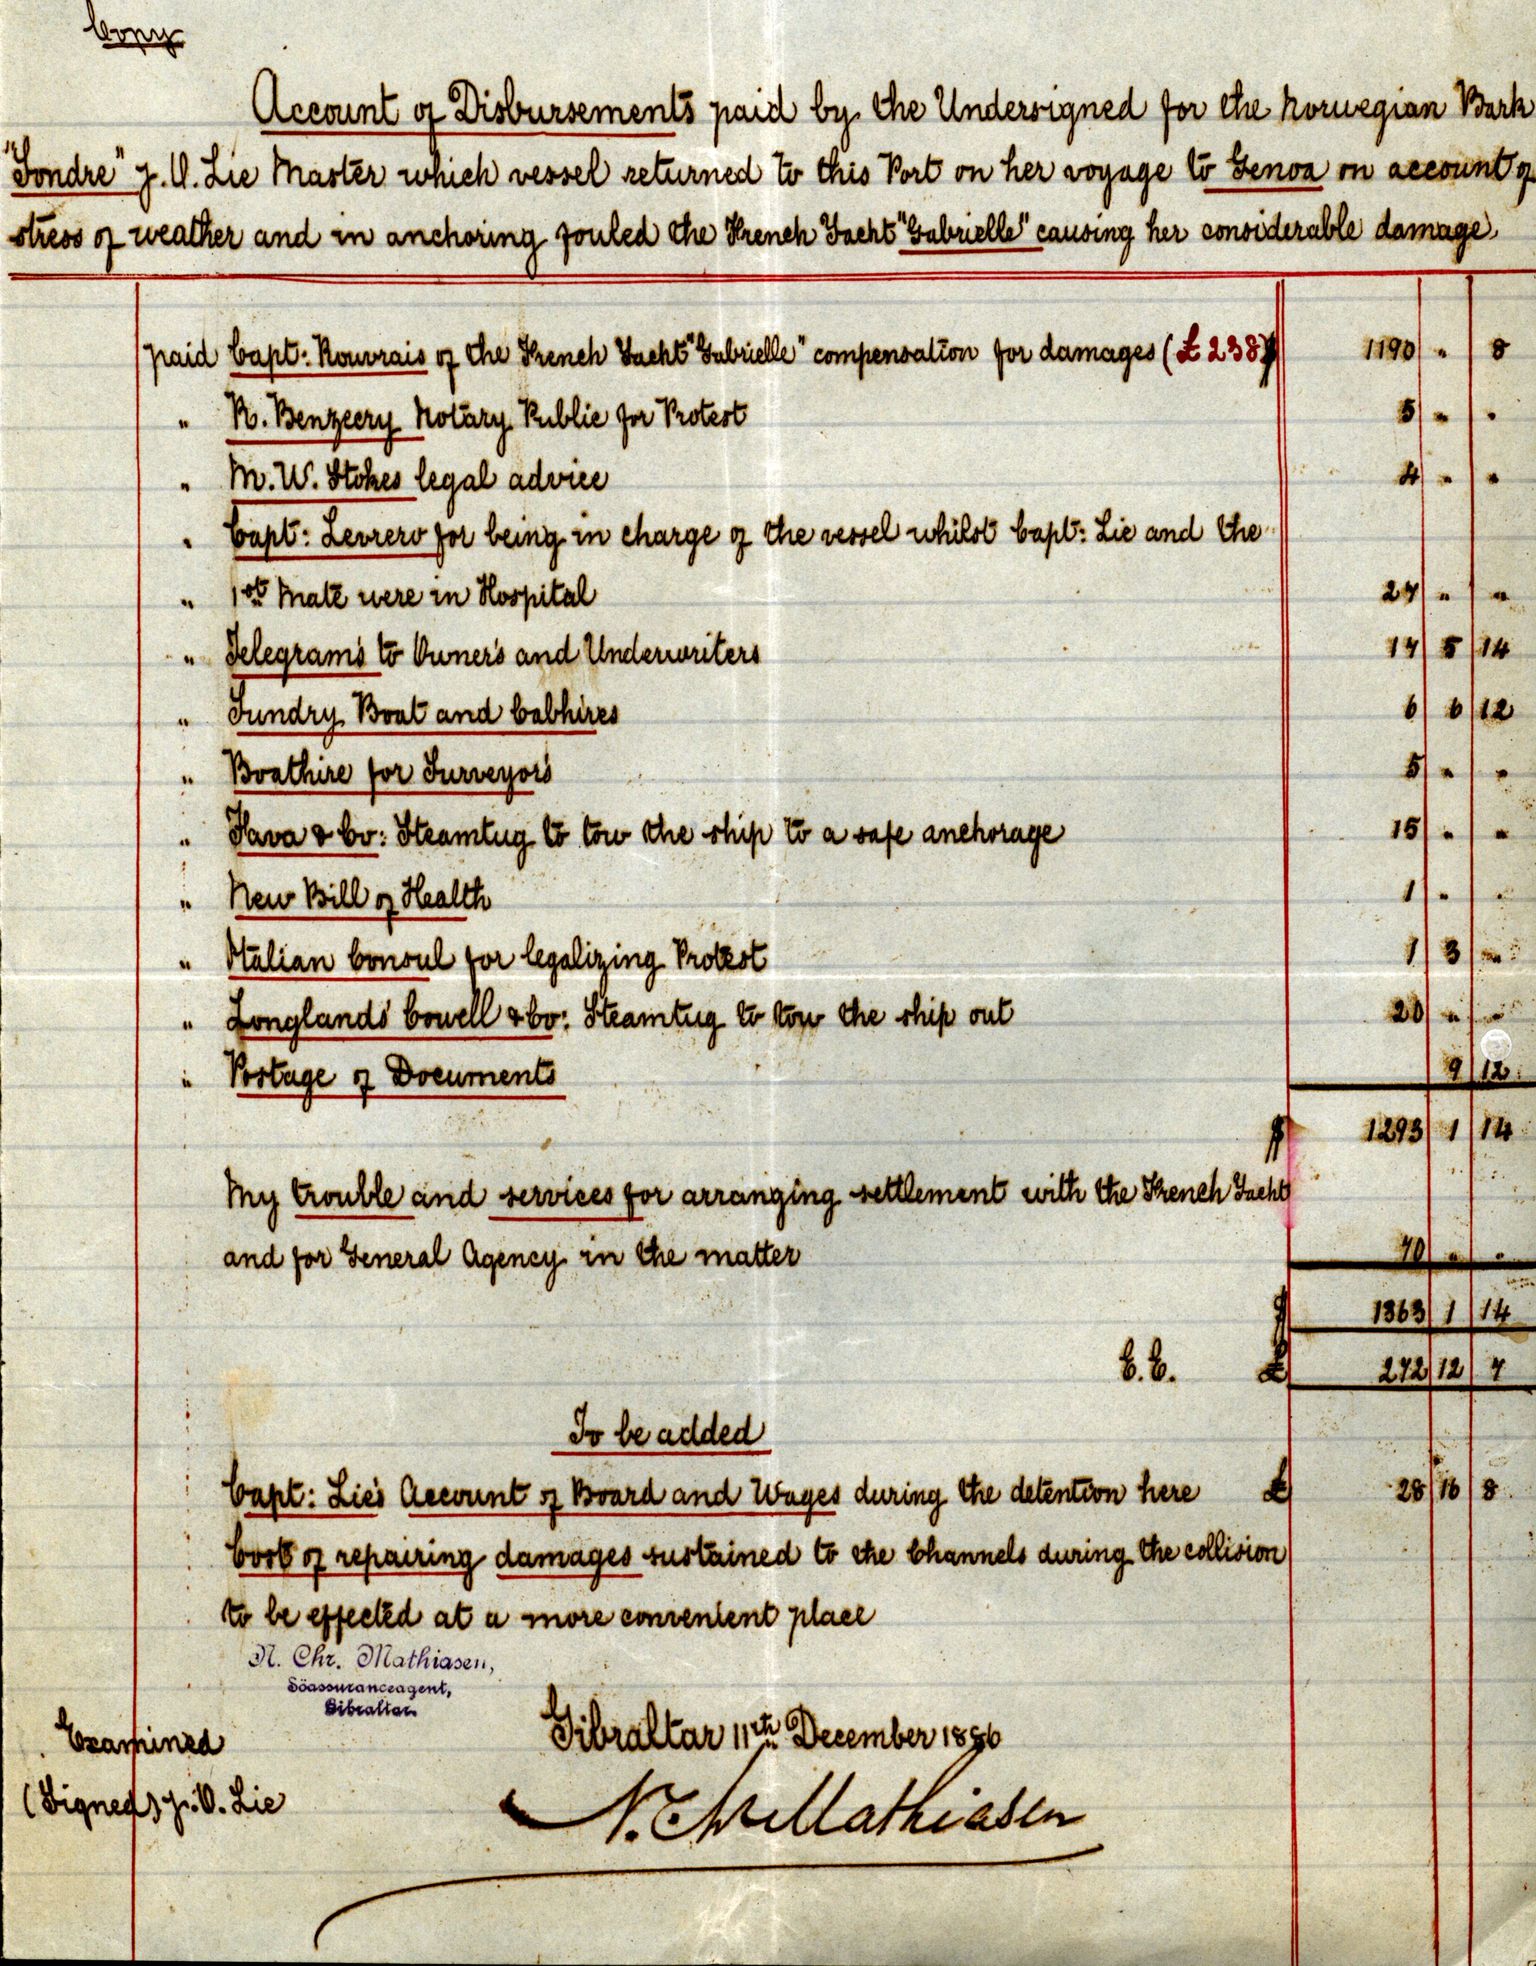 Copy
Account of Disbursements paid by the Undersigned for the Norwegian Bark
"Sondre" J. O. Lie Master which vessel returned to this Port on her voyage to Genoa on account of
stress of weather and in anchoring fouled the French Yacht "Gabrielle" causing her considerable damage.
paid Capt: Rouvrais of the French Yacht "Gabrielle" compensation for damages (£ 238) $ 1190 " 8
" R. Benzecry Notary Public for Protest 5 " "
" M. W. Stokes legal advice 4 " "
" Capt: Levrero for being in charge of the vessel whilst Capt: Lie and the
" 1st Mate were in Hospital 27 " "
" Telegram's to Owner's and Underwriters 17 5 14
" Sundry Boat and Cabhires 6 6 12
" Boathire for Surveyor's 5 " "
" Fava & Co: Steamtug to tow the ship to a safe anchorage 15 " "
" New Bill of Health 1 " "
" Italian Consul for legalizing Protest 1 3 "
" Longlands Cowell & Co: Steamtug to tow the ship out 20 " "
" Postage of Documents 9 12
$ 1293 1 14
My trouble and services for arranging settlement with the French Yacht
and for General Agency in the matter 70 " "
$ 1363 1 14
E.E. £ 272 12 7
To be added
Capt: Lie's Account of Board and Wages during the detention here £ 28 16 8
Cost of repairing damages sustained to the Channels during the collision
to be effected at a more convenient place
N. Chr. Mathiasen,
Söassuranceagent,
Gibraltar.
Gibraltar 11th December 1886
Examined
(Signed) J. O. Lie
N. Chr Mathiasen